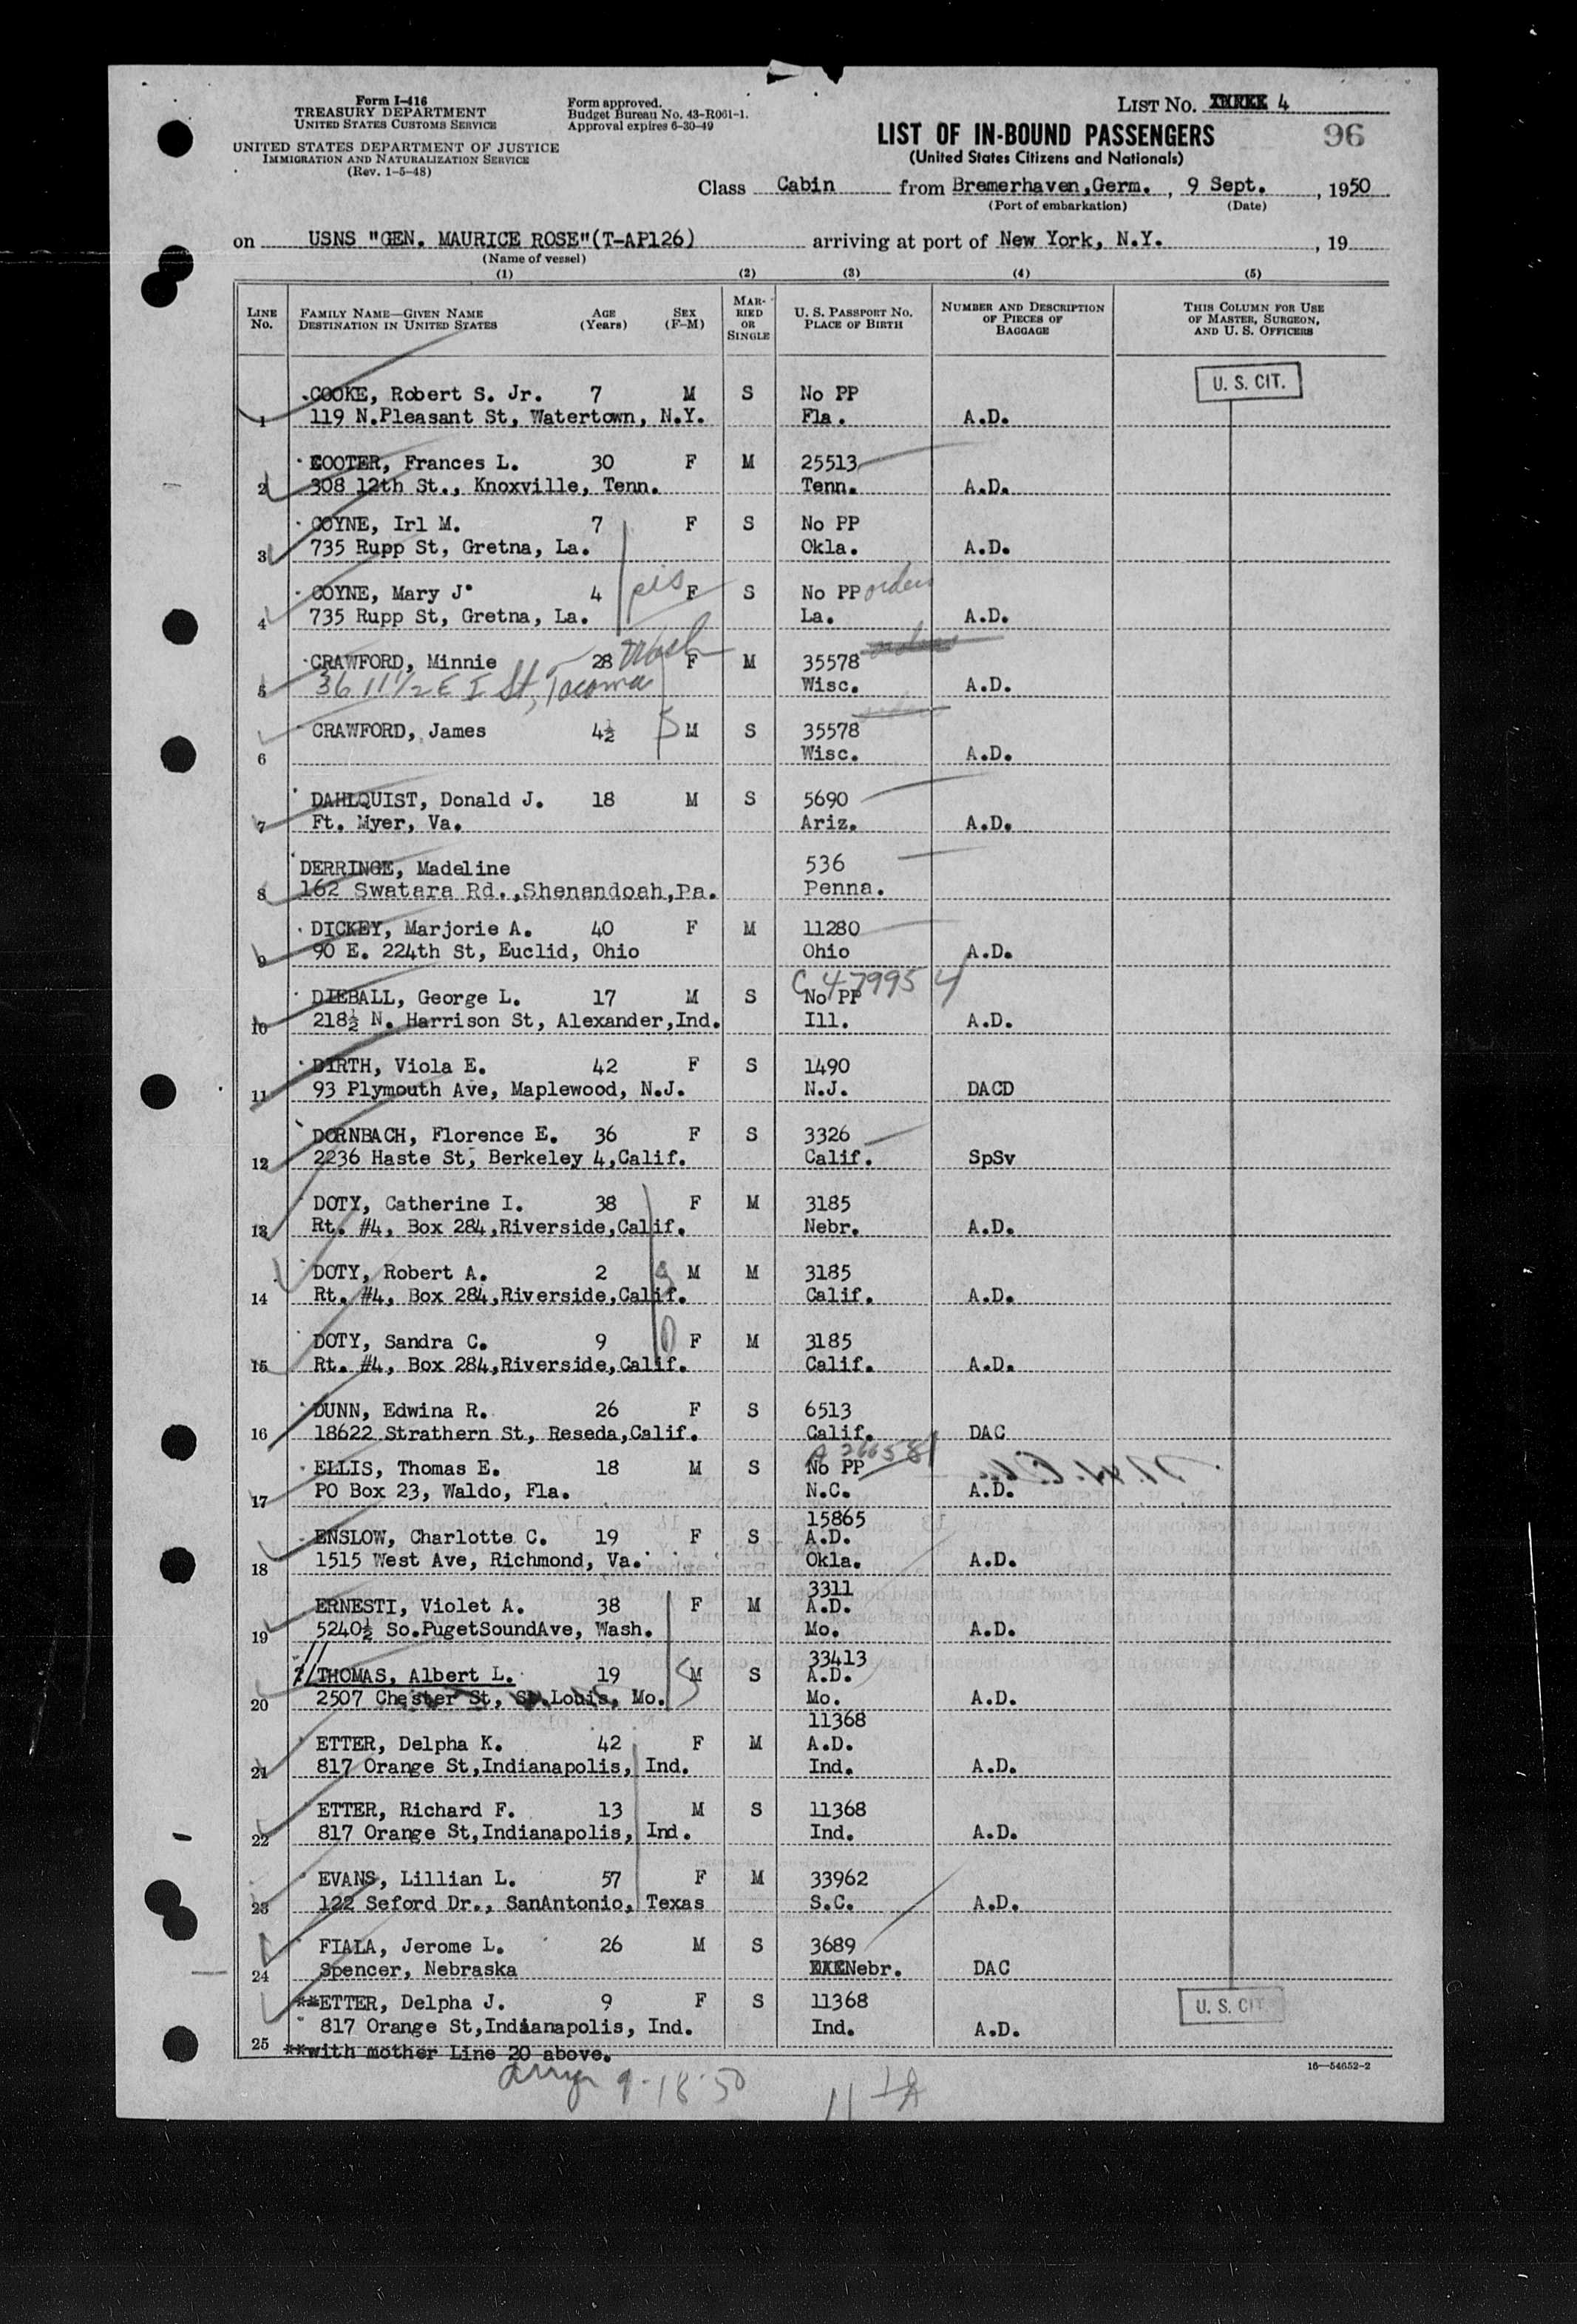 Form I-416
TREASURY DEPARTMENT
UNITED STATES CUSTOMS SERVICE
UNITED STATES DEPARTMENT OF JUSTICE
IMMIGRATION AND NATURALIZATION SERVICE
(Rev. 1-5-48)
Form approved.
Budget Bureau No. 43-R061-1.
Approval expires 6-30-49
LIST NO. 4
LIST OF IN-BOUND PASSENGERS
96
(United States Citizens and Nationals)
Class Cabin from Bremerhaven,Germ., 9 Sept., 1950
(Port of embarkation) (Date)
on USNS "GEN. MAURICE ROSE"(T-AP126) arriving at port of New York, N.Y., 19
(Name of vessel)
(1) (2) (3) (4) (5)
LINE NO.
FAMILY NAME—GIVEN NAME
DESTINATION IN UNITED STATES
AGE (Years)
SEX (F-M)
MARRIED OR SINGLE
U. S. PASSPORT NO.
PLACE OF BIRTH
NUMBER AND DESCRIPTION OF PIECES OF BAGGAGE
THIS COLUMN FOR USE OF MASTER, SURGEON, AND U. S. OFFICERS
U. S. CIT.
COOKE, Robert S. Jr. 7 M S No PP
1 119 N.Pleasant St, Watertown, N.Y. Fla. A.D.
COOTER, Frances L. 30 F M 25513
2 308 12th St., Knoxville, Tenn. Tenn. A.D.
COYNE, Irl M. 7 F S No PP
3 735 Rupp St, Gretna, La. Okla. A.D.
COYNE, Mary J. 4 F S No PP orders
4 735 Rupp St, Gretna, La. La. A.D.
CRAWFORD, Minnie 28 F M 35578
5 3611 1/2 E I St, Tacoma Wash Wisc. A.D.
CRAWFORD, James 4½ M S 35578
6 Wisc. A.D.
DAHLQUIST, Donald J. 18 M S 5690
7 Ft. Myer, Va. Ariz. A.D.
DERRINGE, Madeline 536
8 162 Swatara Rd.,Shenandoah,Pa. Penna.
DICKEY, Marjorie A. 40 F M 11280
9 90 E. 224th St, Euclid, Ohio Ohio A.D.
C 479954
DIEBALL, George L. 17 M S No PP
10 218½ N. Harrison St, Alexander,Ind. Ill. A.D.
DIRTH, Viola E. 42 F S 1490
11 93 Plymouth Ave, Maplewood, N.J. N.J. DACD
DORNBACH, Florence E. 36 F S 3326
12 2236 Haste St, Berkeley 4,Calif. Calif. SpSv
DOTY, Catherine I. 38 F M 3185
13 Rt. #4, Box 284,Riverside,Calif. Nebr. A.D.
DOTY, Robert A. 2 M M 3185
14 Rt. #4, Box 284,Riverside,Calif. Calif. A.D.
DOTY, Sandra C. 9 F M 3185
15 Rt. #4, Box 284,Riverside,Calif. Calif. A.D.
DUNN, Edwina R. 26 F S 6513
16 18622 Strathern St, Reseda,Calif. Calif. DAC
ELLIS, Thomas E. 18 M S No PP
17 PO Box 23, Waldo, Fla. N.C. A.D.
15865
ENSLOW, Charlotte C. 19 F S A.D.
18 1515 West Ave, Richmond, Va. Okla. A.D.
3311
ERNESTI, Violet A. 38 F M A.D.
19 5240½ So.PugetSoundAve, Wash. Mo. A.D.
33413
THOMAS, Albert L. 19 M S A.D.
20 2507 Chester St, St.Louis, Mo. Mo. A.D.
11368
ETTER, Delpha K. 42 F M A.D.
21 817 Orange St,Indianapolis, Ind. Ind. A.D.
ETTER, Richard F. 13 M S 11368
22 817 Orange St,Indianapolis, Ind. Ind. A.D.
EVANS, Lillian L. 57 F M 33962
23 122 Seford Dr., SanAntonio, Texas S.C. A.D.
FIALA, Jerome L. 26 M S 3689
24 Spencer, Nebraska Nebr. DAC
**ETTER, Delpha J. 9 F S 11368
817 Orange St,Indianapolis, Ind. Ind. A.D.
U. S. CIT.
25 **with mother Line 20 above.
16—54652-2
9-18-50